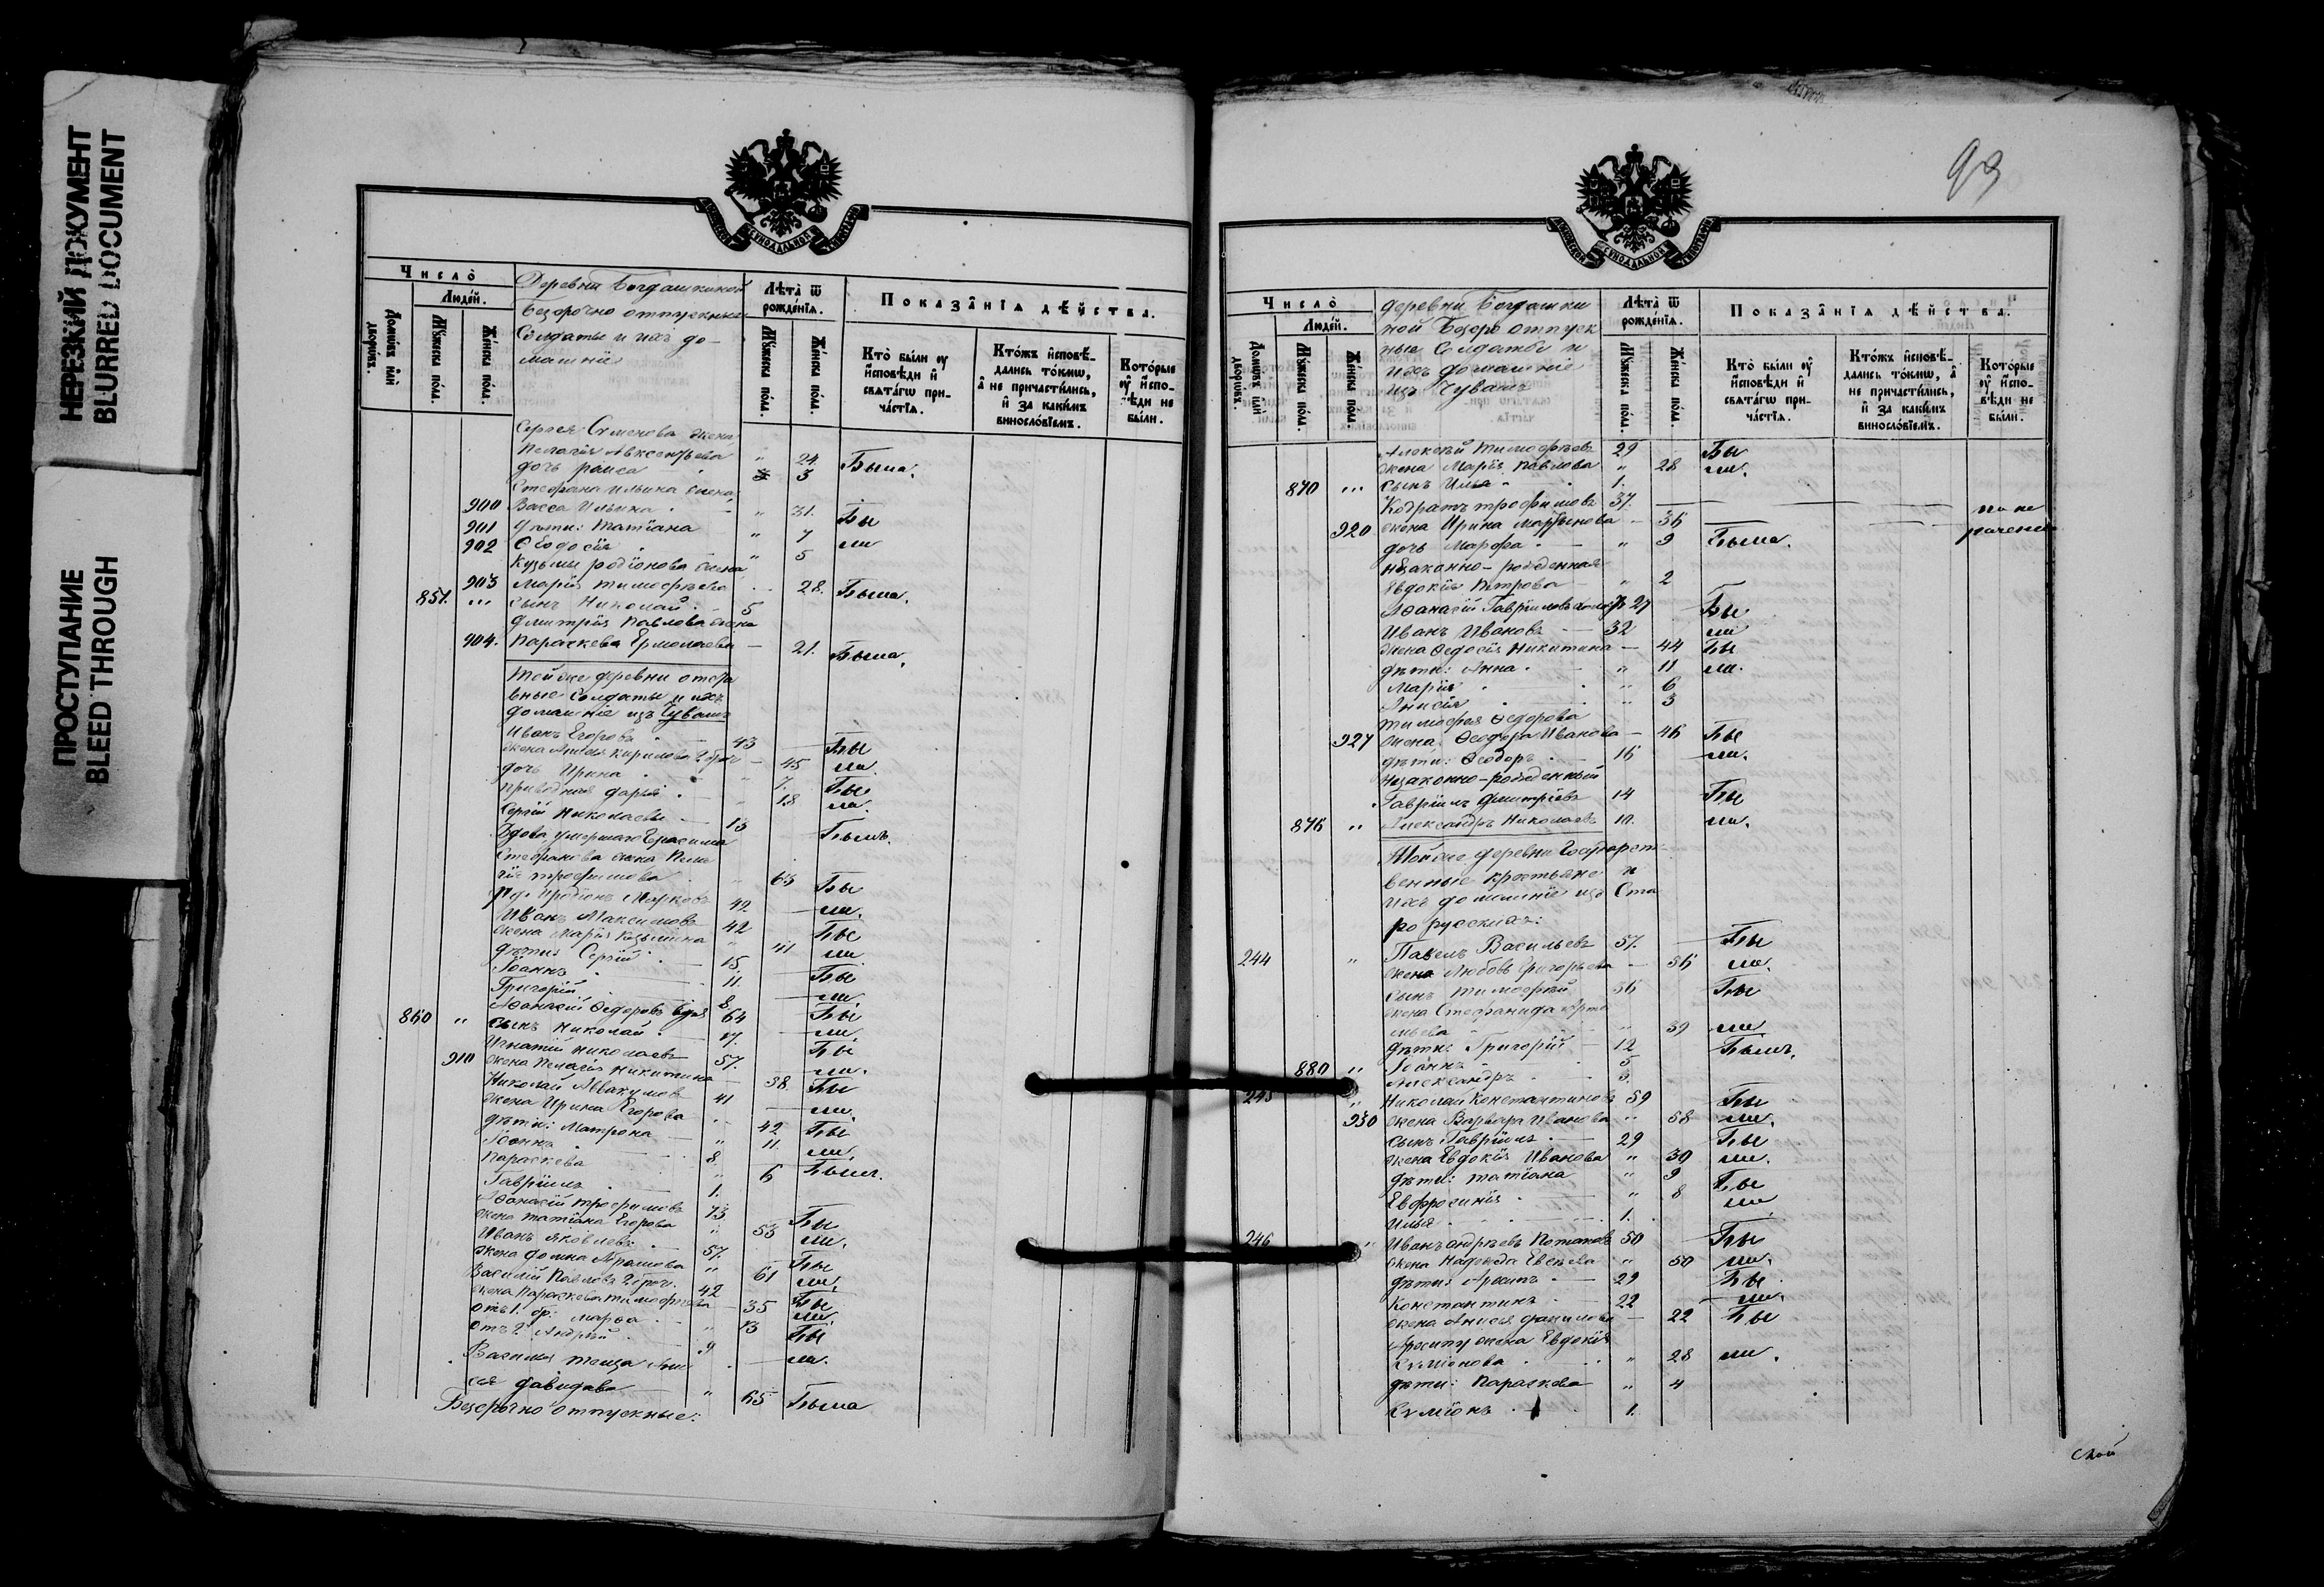 НЕРЕЗКИЙ ДОКУМЕНТ
BLURRED DOCUMENT
ПРОСТУПАНИЕ
BLEED THROUGH
Число̀
Людей.
Домѡвъ или дворѡвъ.
Мꙋжеска пола.
Женска пола.
Деревни Богдашкиной
Безсрочно отпускные
Солдаты и ихъ до-
машніе
Лѣта̀ ѿ рожденїѧ.
Мꙋжеска пола.
Женска пола.
Показа̑нїѧ дѣ́йства.
Кто̀ были оу̓ исповѣди и свѧтагѡ причастїѧ.
Кто́жъ исповѣдались то́кмѡ, а не причастились, и за какимъ винословїемъ.
Которые оу̓ исповѣди не были.
Сергея Семенова жена
Пелагія Авксентьева " 24. Была.
дочь раиса 3
Стефана Ильина жена
900 Васса Ильина " 31. Бы
901 дѣти: Татіана " 7 ли
902 Ѳеодосія " 5
Кузьмы родіонова жена
903 Марія тимофѣева 28. Была.
851. " сынъ Николай 5
дмитрія Павлова жена
904. Параскева Ермолаева — 21. Была.
Той же деревни отста
вные солдаты и ихъ
домашніе изъ Чувашъ
Иванъ Егоровъ 43 — Бы
жена Кирилова 2 брач — 45 ли.
дочь Ирина " 7. Бы
приводная дарья " 18 ли.
Сергій Николаевъ 13 Былъ.
Вдова умершаго Герасима
Стефанова жена Пела
гія трофимова " 63 Бы
Иродіонъ Марковъ 42 — ли.
Иванъ Максимовъ 42 Бы
жена Марія Козьмина " 41 ли
дѣти: Сергій 15. Бы
Іоаннъ 11. ли.
Григорій 8.
Аѳанасій Ѳедоровъ 64 Бы
860 " сынъ Николай 17. — ли.
Игнатій Николаевъ 57. Бы
910 жена Пелагія Никитина — 38. ли.
Николай Аввакумовъ 41 Бы
жена Ирина Егорова — 42 ли.
дѣти: Матрона " 11. Бы
Іоаннъ 8. ли.
Параскева " 6 Былъ.
Гавріилъ 1.
Аѳанасій трофимовъ 73 Бы
жена татіана Егорова " 53 ли.
Иванъ Яковлевъ 57. Бы
жена домна Абрамова " 61 ли.
Василій Павловъ 2 брач. 42 Бы
жена Параскева тимофѣева — 35 ли.
отъ 1. бр. Марѳа " 13 Бы
отъ 2. Андрей 9 — ли.
Василія теща Ани
сія давидова " 65 Была
Безсрочно отпускные:
93
Число̀
Людей.
Домѡвъ или дворѡвъ.
Мꙋжеска пола.
Женска пола.
деревни Богдашки
ной Безсро отпуск
ные Солдаты и
ихъ домашніе
изъ Чувашъ
Лѣта̀ ѿ рожденїѧ.
Мꙋжеска пола.
Женска пола.
Показа̑нїѧ дѣ́йства.
Кто̀ были оу̓ исповѣди и свѧтагѡ причастїѧ.
Кто́жъ исповѣдались то́кмѡ, а не причастились, и за какимъ винословїемъ.
Которые оу̓ исповѣди не были.
Алексѣй Тимофѣевъ 29 Бы
жена Марія Павлова " 28 ли.
870 " сынъ Илья 1.
Кодратъ трофимовъ 37. по не
920 жена Ирина Мартынова — 36 раченію
дочь Марфа " 9 Была.
незаконно-рожденная
Евдокія Петрова " 2
Аѳанасій Гавріиловъ 27 Бы
Иванъ Ивановъ 32 ли
жена Ѳедосія Никитина — 44 Бы
дѣти: Анна " 11 ли.
Марія " 6
Анисія " 3
тимофея Ѳедорова
927 жена Ѳеодора Иванова — 46 Бы
дѣти: Ѳеодоръ 16 — ли.
незаконно-рожденный
Гавріилъ дмитріевъ 14 Бы
876 " Александръ Николаевъ 10. ли.
Той же деревни Государст
венные крестьяне и
ихъ домашніе изъ Ста
ро русскихъ:
244 " Павелъ Васильевъ 57. — Бы
жена Любовь Григорьева — 56 ли.
сынъ тимофей 36 Бы
жена Стефанида Арте
мьева " 39 ли
дѣти: Григорій 12 Былъ.
880 " Іоаннъ 5
Александръ 3.
245 " Николай Константиновъ 59 Бы
930 жена Варвара Иванова " 58 ли.
сынъ Гавріилъ 29 Бы
жена Евдокія Иванова " 30 ли.
дѣти: татіана " 9 Бы
Евфросинія " 8 ли
Илья 1.
246 " Иванъ андрѣевъ Потаповъ 50 — Бы
жена Надежда " 50 ли.
дѣти: Архипъ 29 Бы
Константинъ 22 — ли.
жена Анисья данилова — 22 Бы
Архипу жена Евдокія
Сѵміонова " 28 ли.
дѣти: Параскева " 4
Сѵміонъ 1.
ской